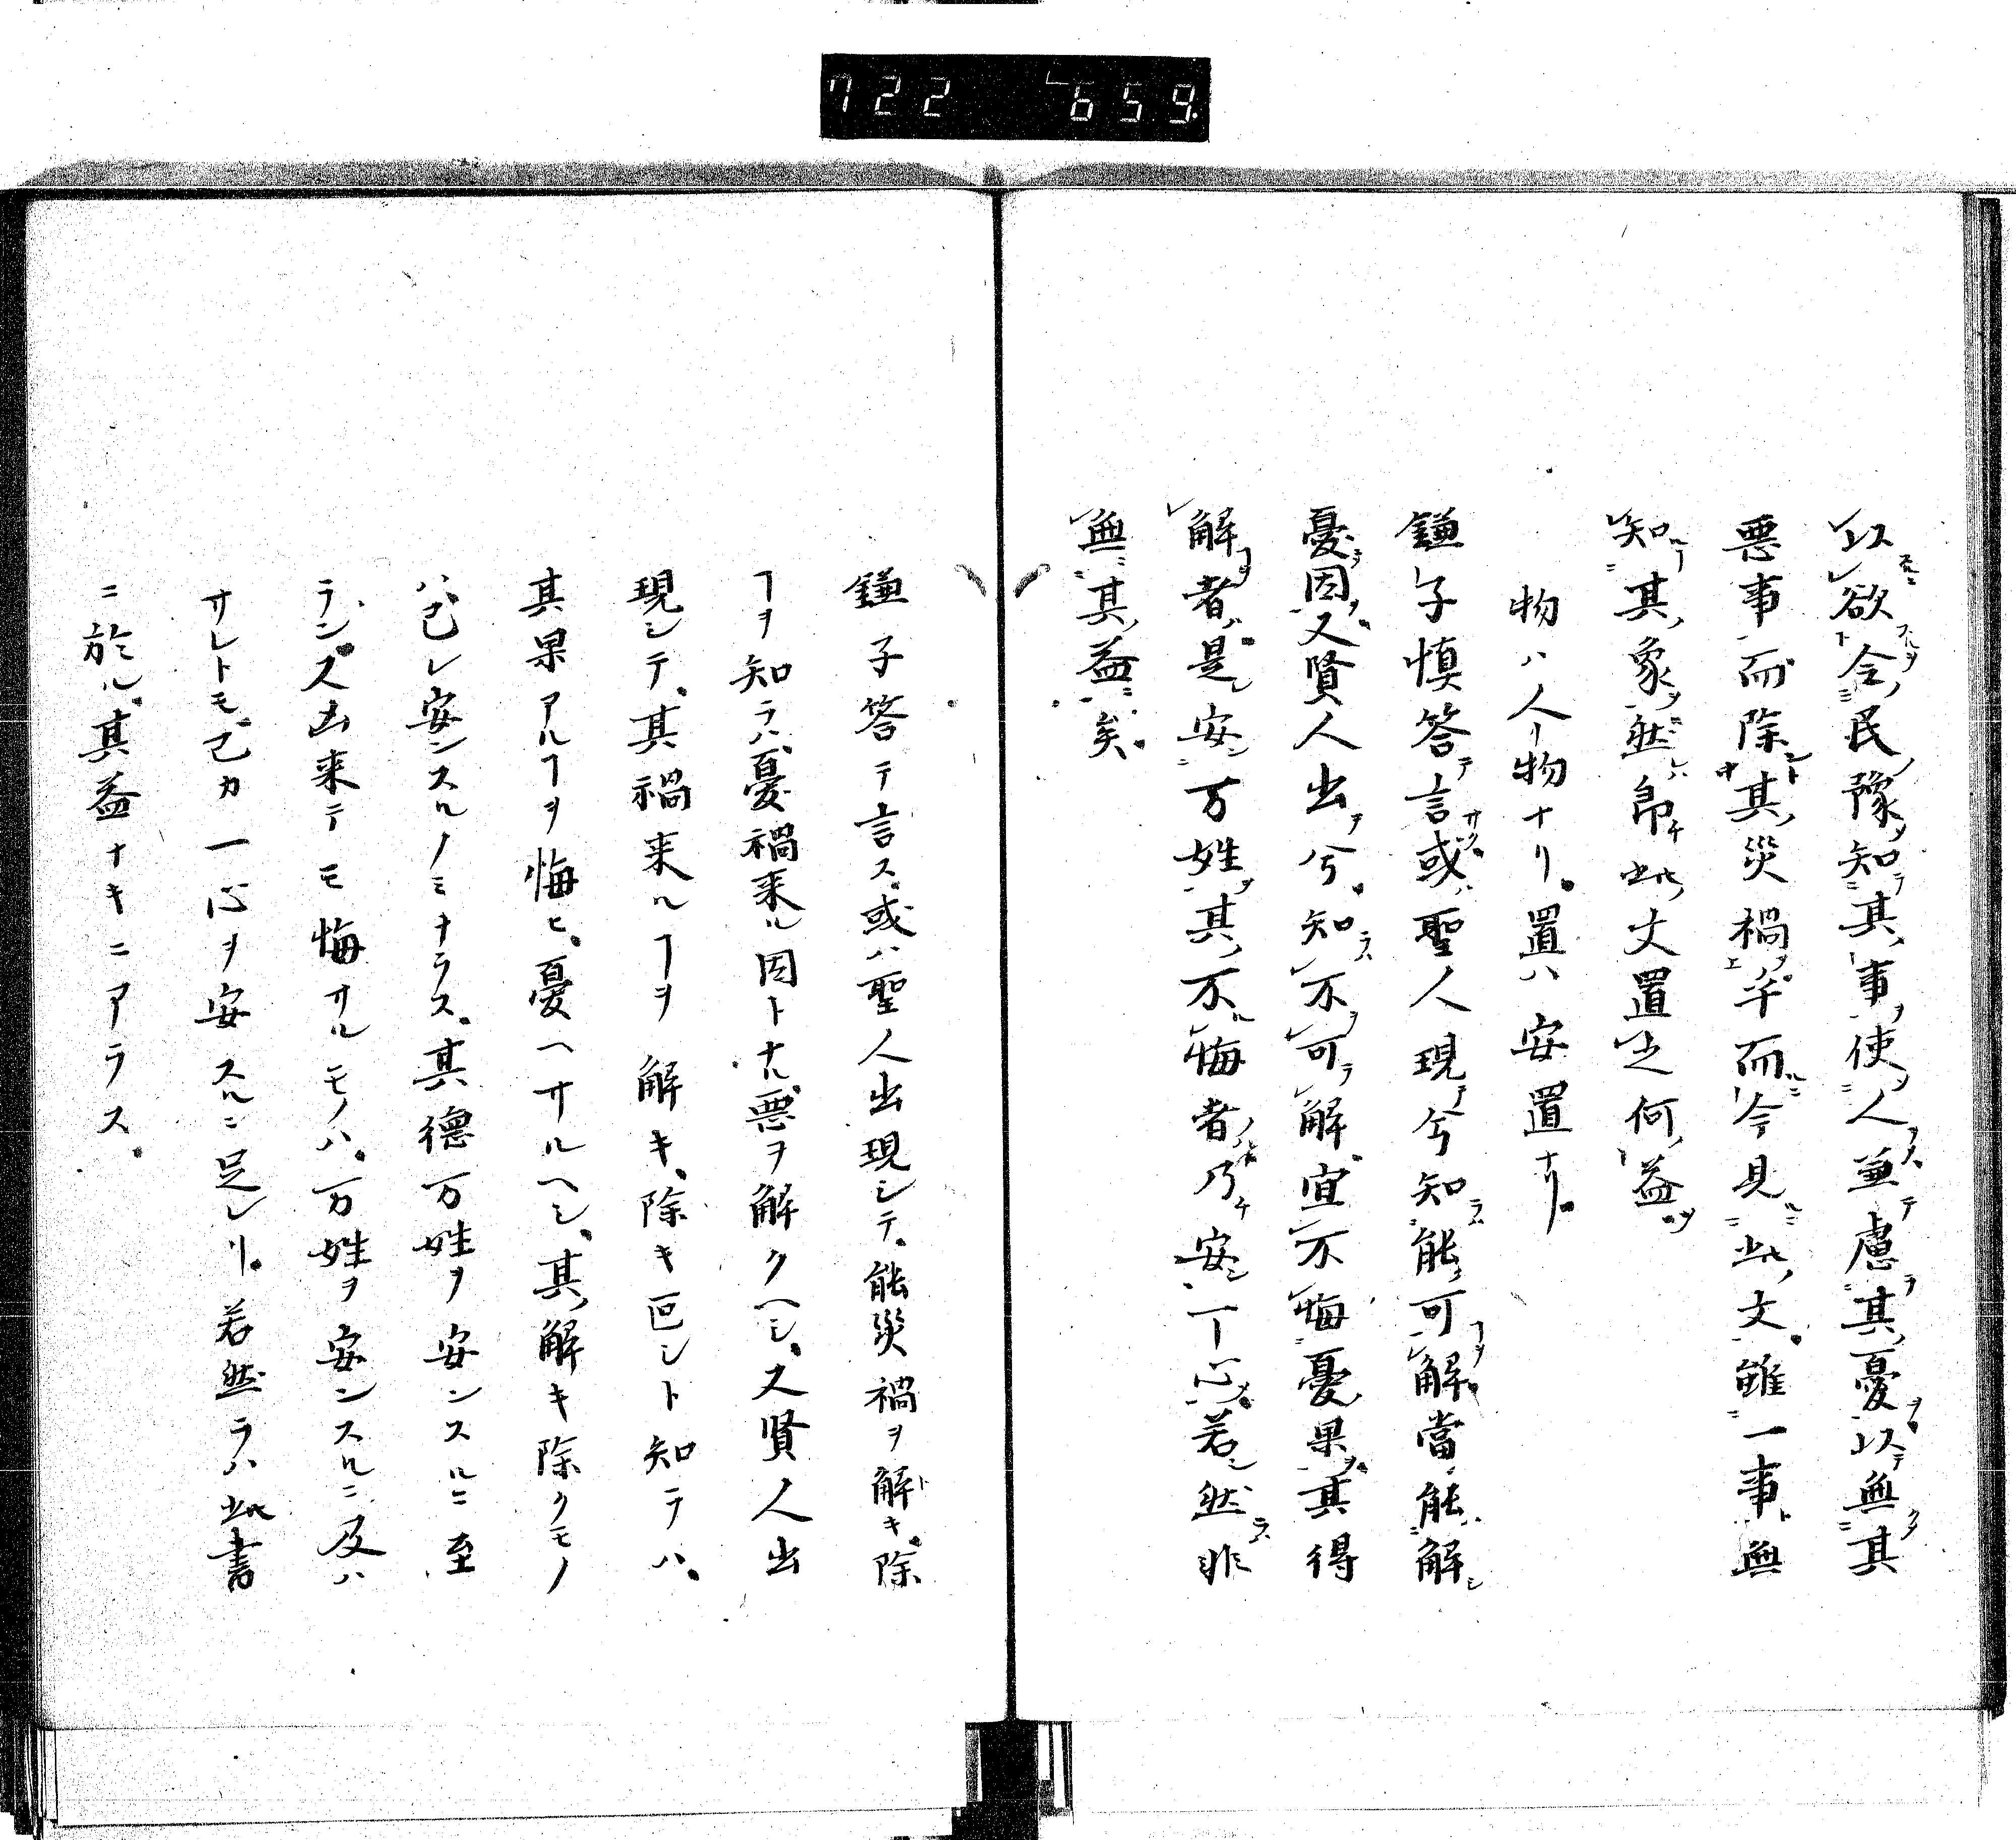 722 659
以欲令民豫知其事使人並慮其憂以無其
悪事而除其災禍乎而今見此文雖一事無
知其象然即此文置之何益
物ハ人ノ物ナリ。置ハ安置ナリ。
鎌子慎答言或聖人現兮知能可解當能解
憂因又賢人出兮知不可解宜不悔憂果其得
解者是安万姓其不悔者乃安一心若然非
無其益矣
鎌子答テ言ス。或ハ聖人出現シテ。能災禍ヲ解キ。除
ヿヲ知ラハ。憂禍来ル因トナル。悪ヲ解クヘシ。又賢人出
現シテ。其禍来ルヿヲ解キ。除キ叵シト知テハ。
其果アルヿヲ悔ヒ。憂ヘサルヘシ。其解キ除クモノ
ハ。己レ安ンスルノミナラス。其徳万姓ヲ安ンスルニ至
ラン。又凶来テモ悔サルモノハ。万姓ヲ安ンスルニ及ハ
サレトモ。己カ一心ヲ安スルニ足レリ。若然ラハ此書
ニ於ル。其益ナキニアラス。